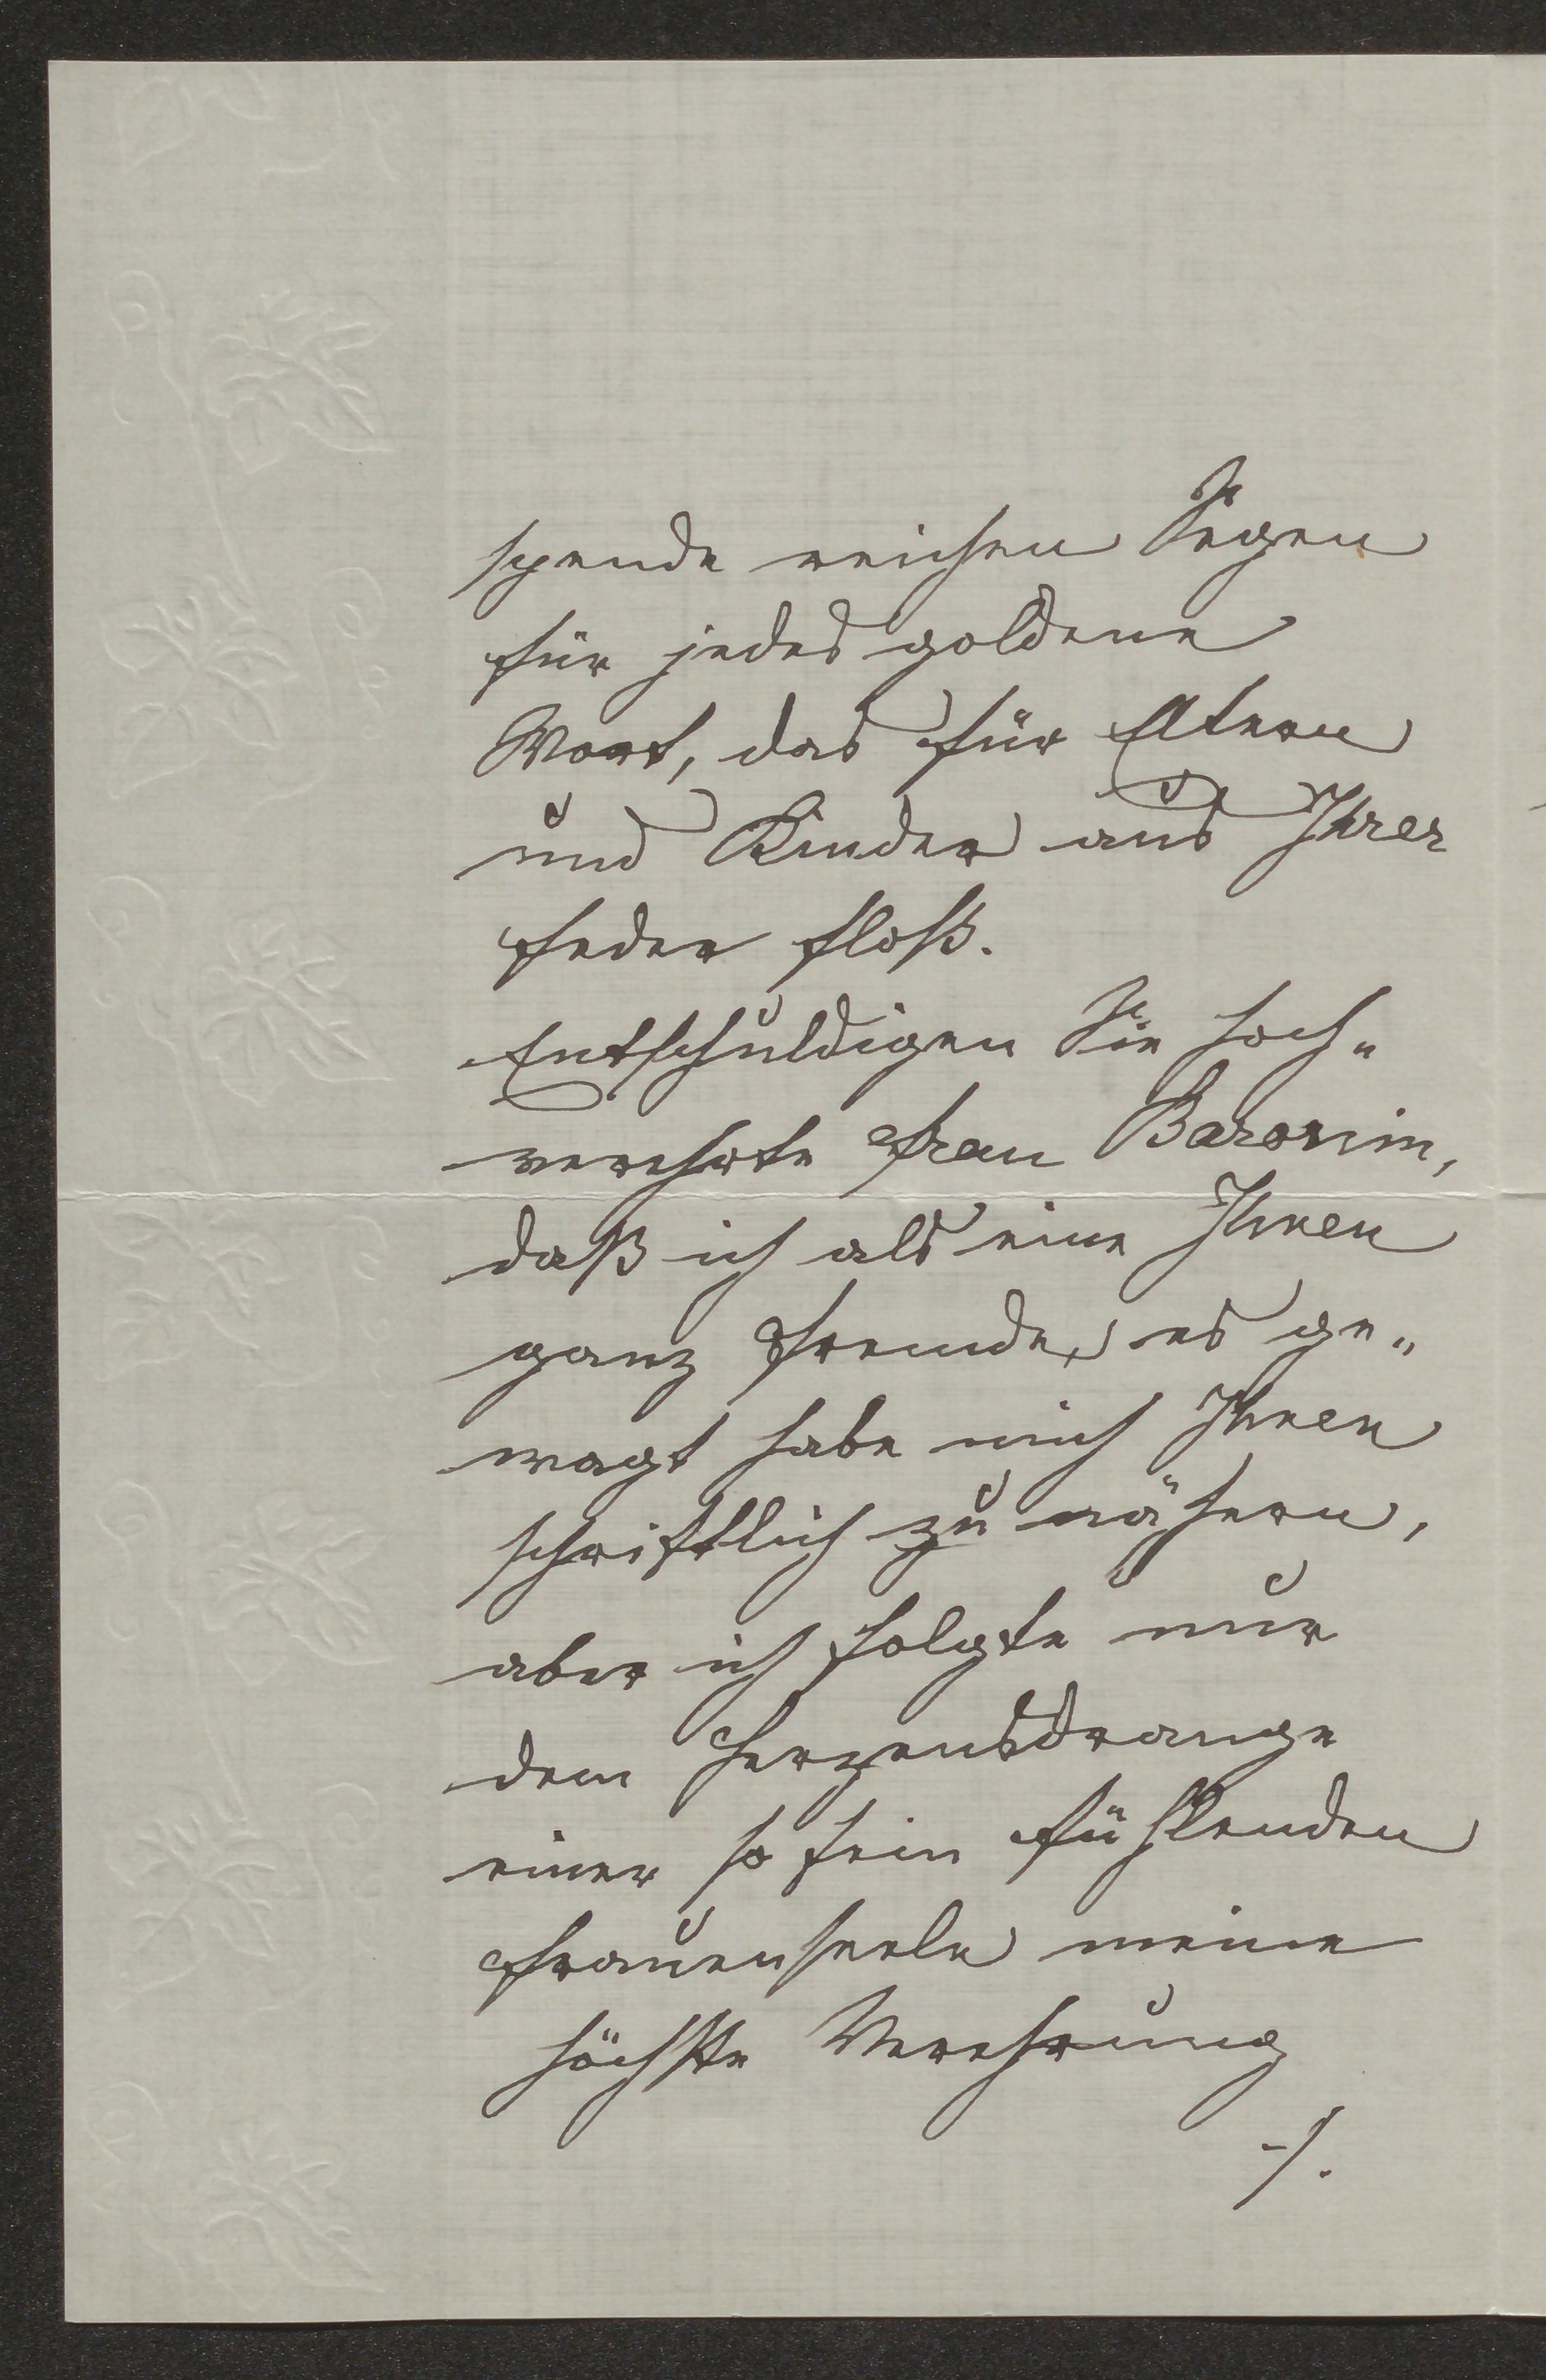 spende reichen Segen
für jedes goldene
Wort, das für Eltern
und Kinder aus Ihrer
Feder floß.
Entschuldigen Sie hoch„
verehrte Frau Baronin,
daß ich als eine Ihnen
ganz Fremde, es ge„
wagt habe mich Ihnen
schriftlich zu nähern,
aber ich folgte nur
dem Herzensdrange
einer so fein fühlenden
Frauenseele meine
höchste Verehrung
-/.